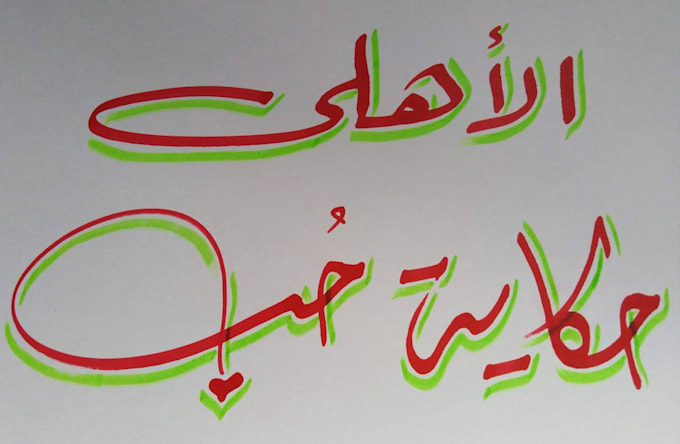 الأهلى
حكاية حُب